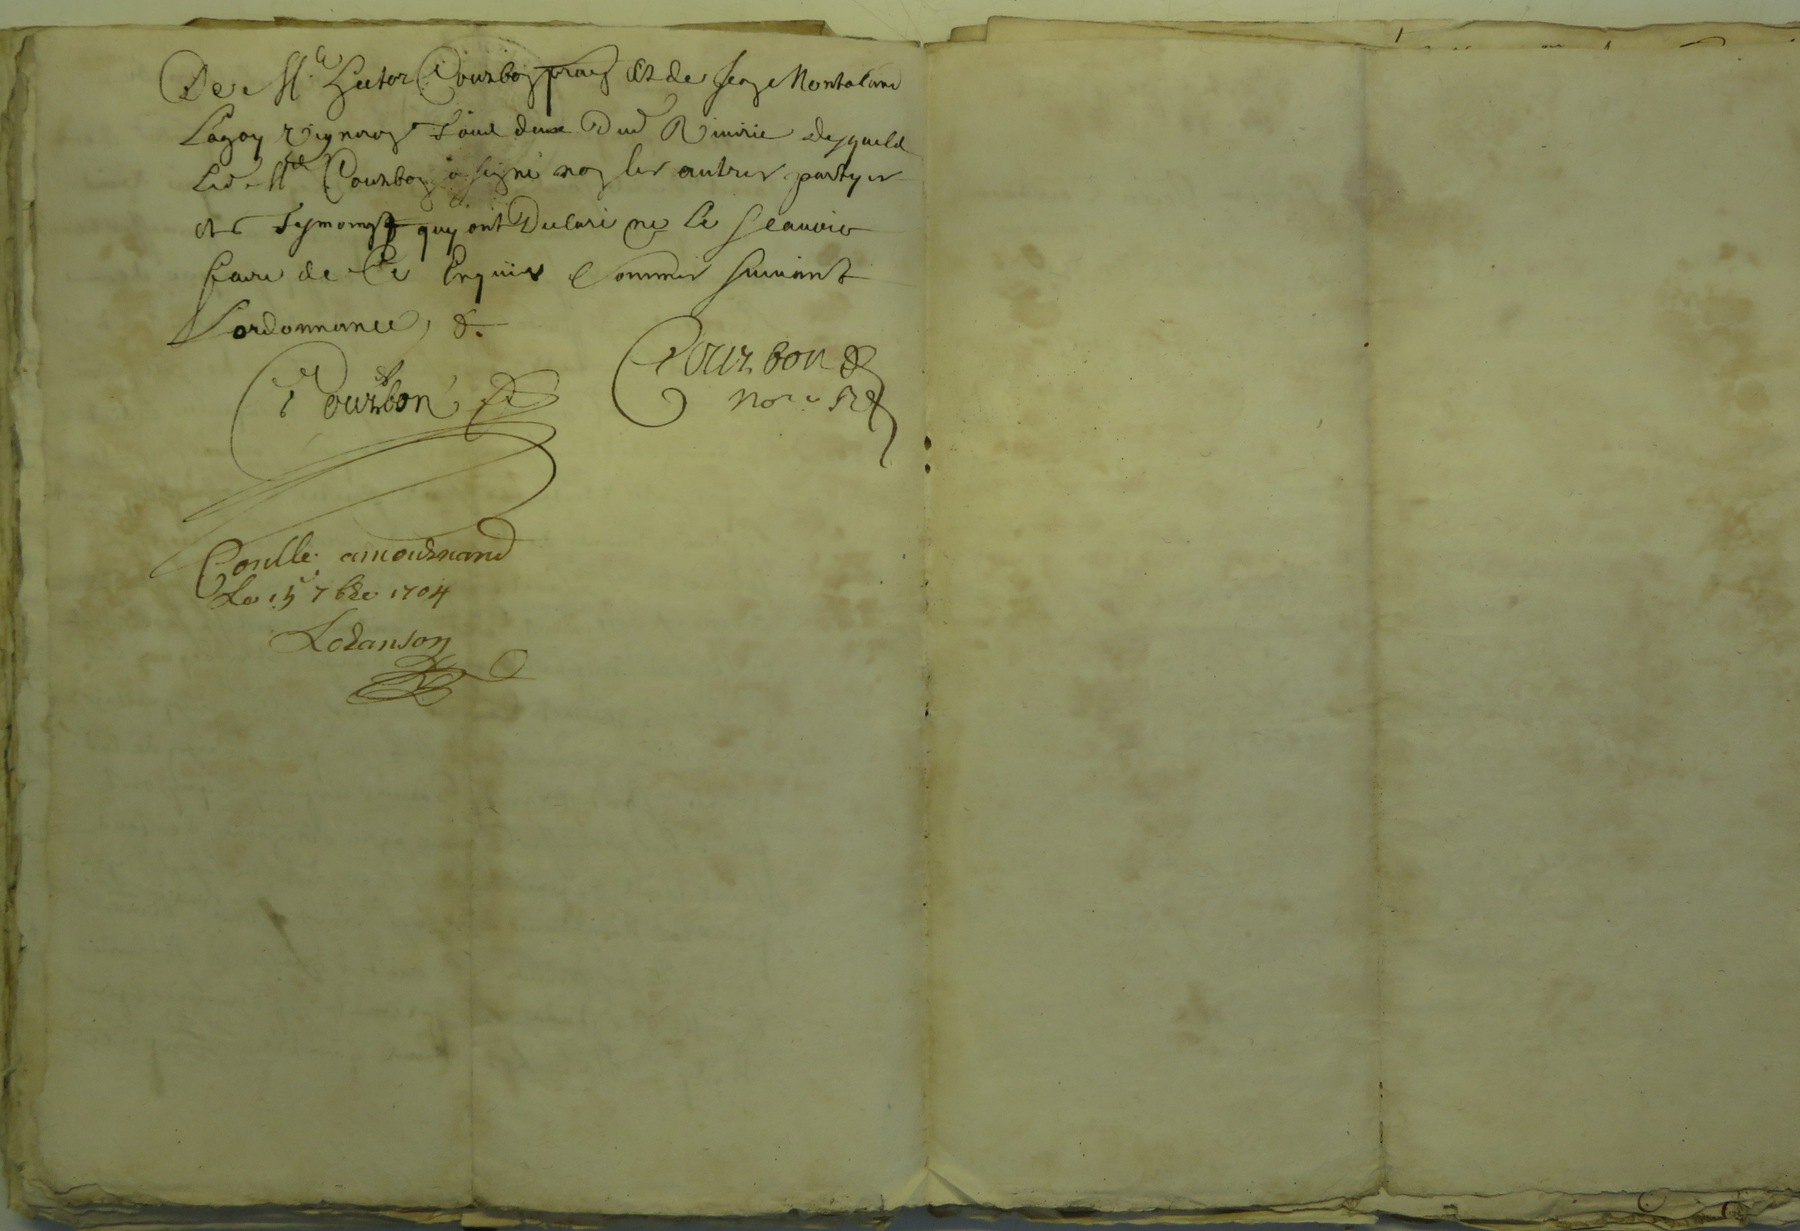 De Mc Hector Courbon prat et de Jean Montaland
Lagay vigneron tous deux dud Rivirie desquels
Led Mc Courbon a signé non les autres partyes
et tesmoings quy ont declaré ne le scavoir
faire de ce enquis et sommés suivant
Lordonnance, &.
Courbon
Courbon
Nore Rl
Conlle a mournand
Le 15 7bre 1704
Lodanson